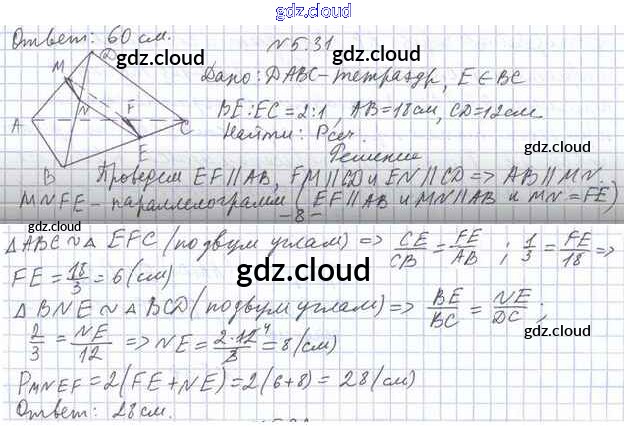 gdz.cloud
Ответ: 60 см.
№5.31
gdz.cloud
gdz.cloud
Дано: DABC – тетраэдр, E ∈ BC
BE : EC = 2 : 1, AB = 18 см, CD = 12 см.
Найти: Pсеч.
gdz.cloud
Решение
D
M
N
F
A
C
E
B
Проведем EF ∥ AB, FM ∥ CD и EN ∥ CD => AB ∥ MN.
MNFE – параллелограмм (EF ∥ AB и MN ∥ AB и MN = FE)
gdz.cloud
– 8 –
gdz.cloud
△ABC ~ △ EFC (по двум углам) => CE/CB = FE/AB ; 1/3 = FE/18 =>
FE = 18/3 = 6 (см)
gdz.cloud
△ BNE ~ △ BCD (по двум углам) => BE/BC = NE/DC ;
gdz.cloud
2/3 = NE/12 => NE = 2·12⁴/3 = 8 (см)
gdz.cloud
PMNEF = 2(FE + NE) = 2(6+8) = 28 (см)
Ответ: 28 см.
gdz.cloud
gdz.cloud